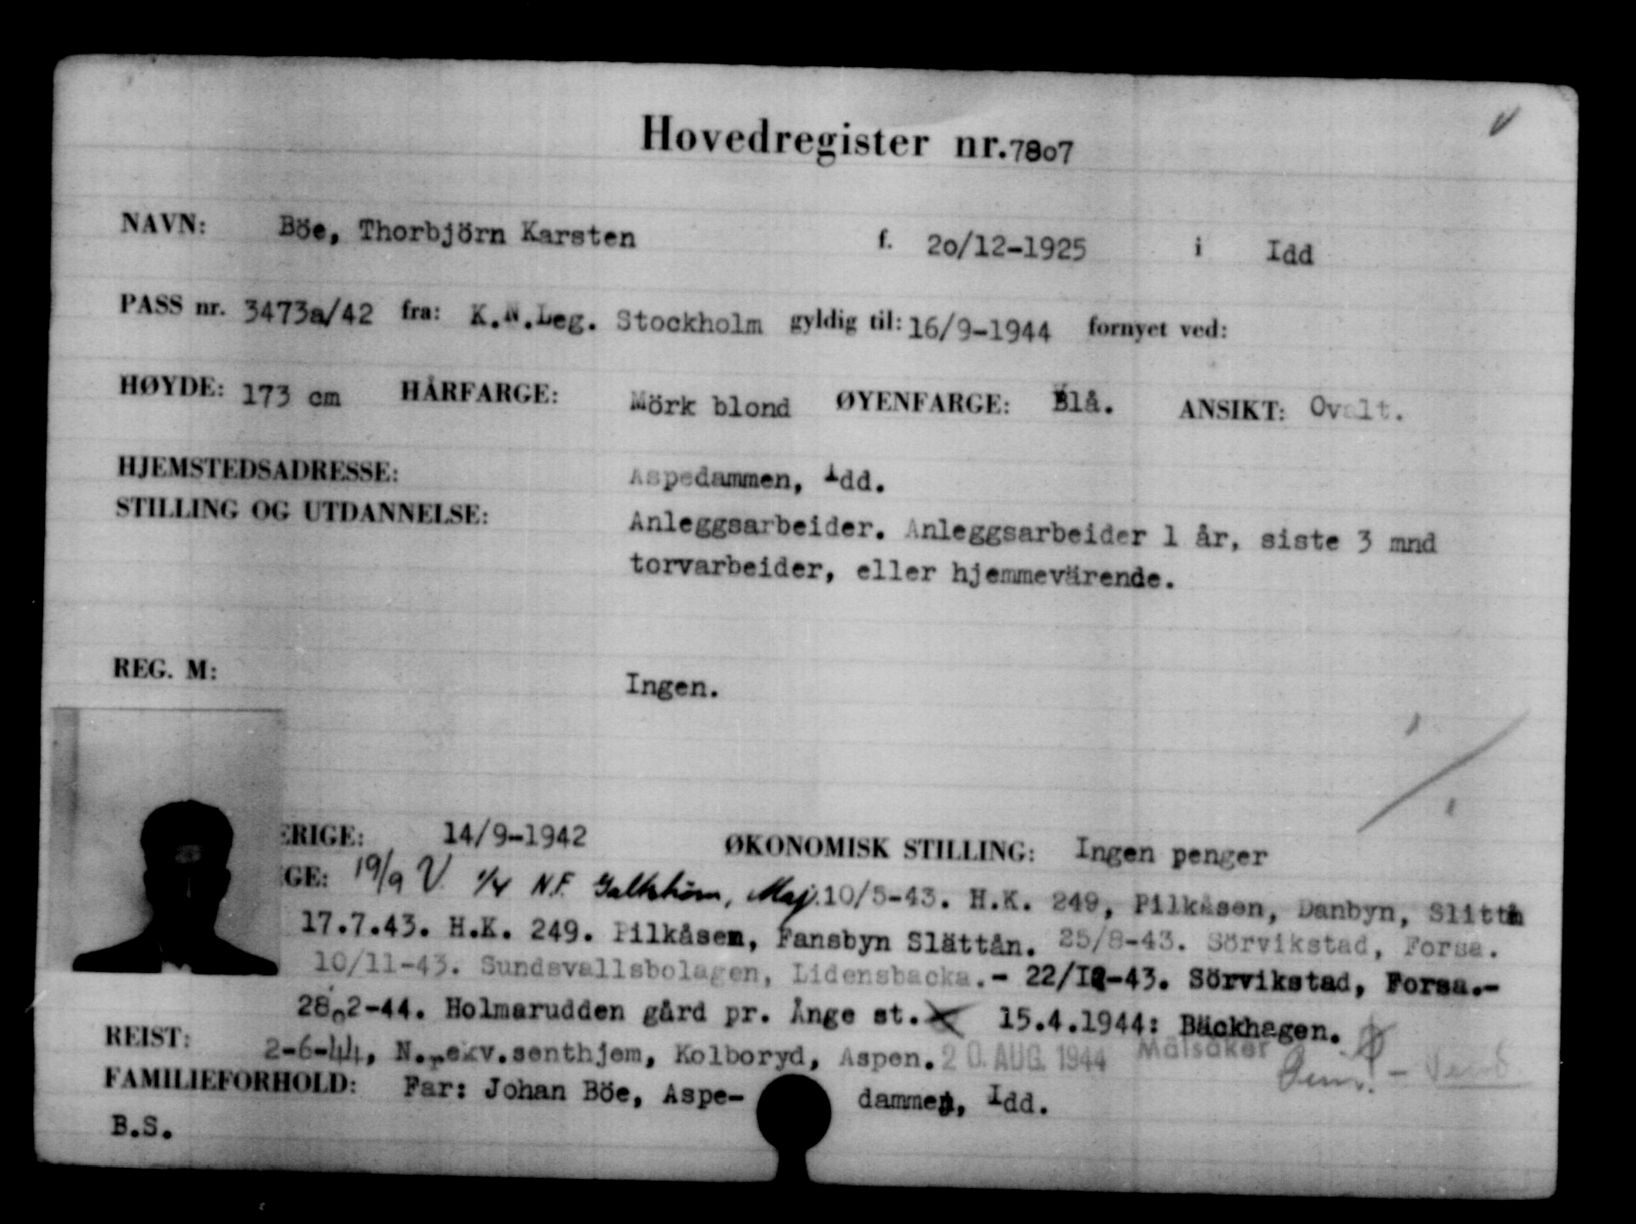 Hovedregister nr.7807
NAVN: Böe, Thorbjörn Karsten f. 20/12-1925 i Idd
PASS nr. 3473a/42 fra: K.N.Leg. Stockholm gyldig til: 16/9-1944 fornyet ved:
HØYDE: 173 cm HÅRFARGE: Mörk blond ØYENFARGE: Blå. ANSIKT: Ovalt.
HJEMSTEDSADRESSE: Aspedammen, Idd.
STILLING OG UTDANNELSE: Anleggsarbeider. Anleggsarbeider 1 år, siste 3 mnd
torvarbeider, eller hjemmevärende.
REG. M: Ingen.
ERIGE: 14/9-1942 ØKONOMISK STILLING: Ingen penger
GE: 19/9 V 1/4 N.F. Maj. 10/5-43. H.K. 249, Pilkåsen, Danbyn, Slittån
17.7.43. H.K. 249. Pilkåsen, Fansbyn Slättån. 25/8-43. Sörvikstad, Forsa.
10/11-43. Sundsvallsbolagen, Lidensbacka.- 22/12-43. Sörvikstad, Forsa.-
28.2-44. Holmarudden gård pr. Ånge st. 15.4.1944: Bäckhagen.
REIST: 2-6-44, N. senthjem, Kolboryd, Aspen. 20. AUG. 1944 Mälsåker
FAMILIEFORHOLD: Far: Johan Böe, Aspe- dammen, Idd.
B.S.